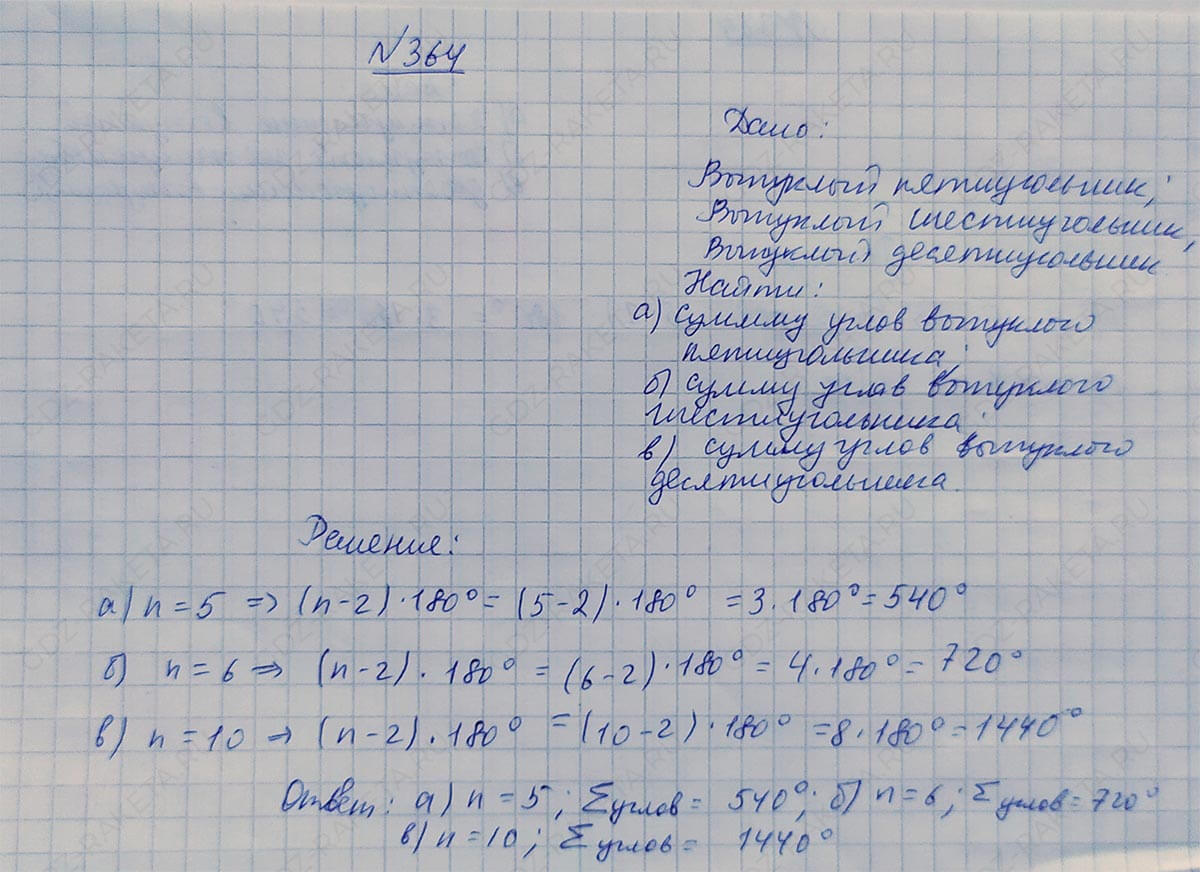 N364
Дано:
Выпуклый пятиугольник;
Выпуклый шестиугольник,
Выпуклый десятиугольник
Найти:
а) сумму углов выпуклого
пятиугольника;
б) сумму углов выпуклого
шестиугольника;
в) сумму углов выпуклого
десятиугольника.
Решение:
а) n = 5 => (n-2)·180° = (5-2)·180° = 3·180° = 540°
б) n = 6 => (n-2)·180° = (6-2)·180° = 4·180° = 720°
в) n = 10 => (n-2)·180° = (10-2)·180° = 8·180° = 1440°
Ответ: а) n = 5; Σуглов = 540°; б) n = 6; Σуглов = 720°
в) n = 10; Σуглов = 1440°
GDZ-RAKETA.RU